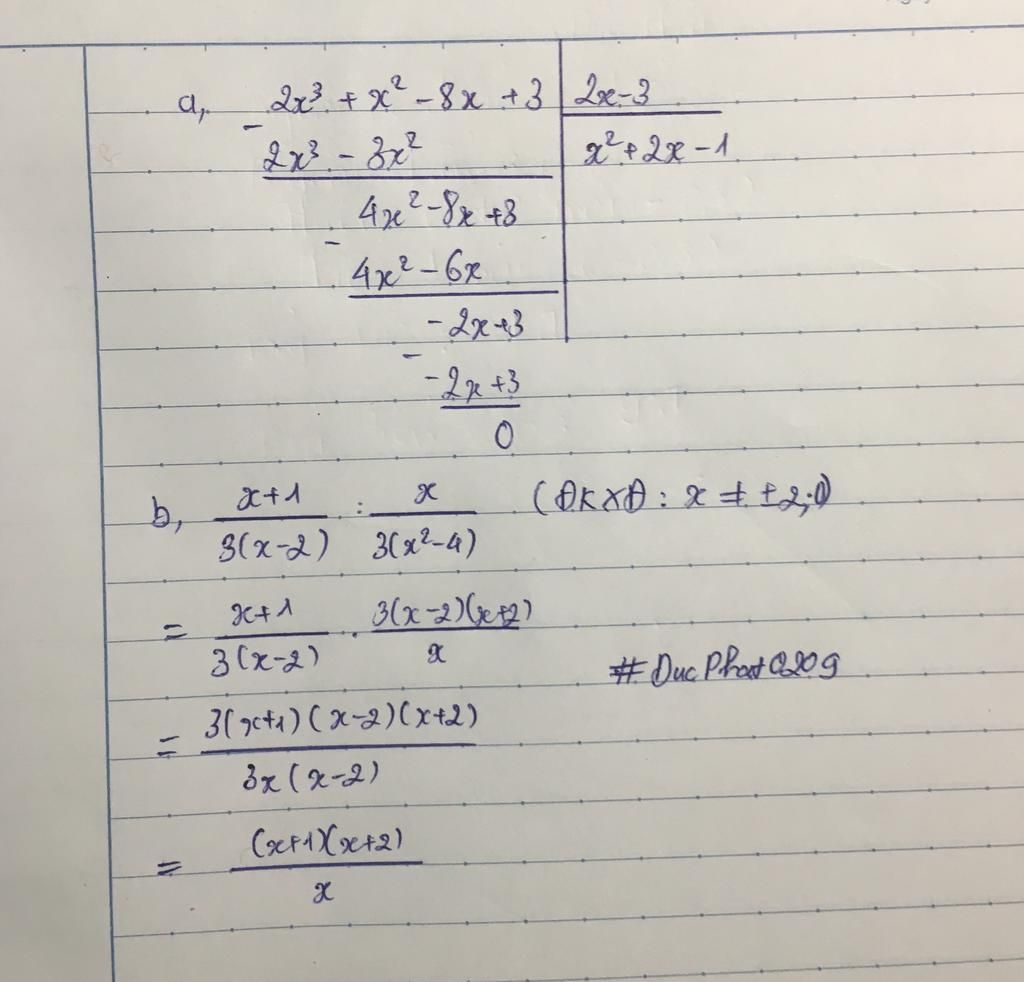 a, 2x³ + x² - 8x + 3 | 2x - 3
- 2x³ - 3x² | x² + 2x - 1
4x² - 8x + 3
- 4x² - 6x
- 2x + 3
- - 2x + 3
0
b, (x+1)/(3(x-2)) : x/(3(x²-4)) (ĐKXĐ: x ≠ ±2; 0)
= (x+1)/(3(x-2)) . (3(x-2)(x+2))/x
# DucPhat0209
= (3(x+1)(x-2)(x+2))/(3x(x-2))
= ((x+1)(x+2))/x